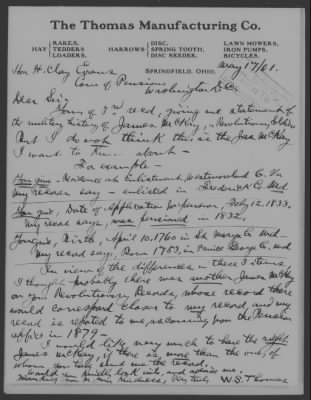 The Thomas Manufacturing Co.
HAY { RAKES, TEDDERS, LOADERS.
HARROWS { DISC, SPRING TOOTH, DISC SEEDER.
LAWN MOWERS, IRON PUMPS, BICYCLES.
SPRINGFIELD, OHIO.
May 17/01.
Hon. H. Clay Evans
Com of Pensions,
Washington D.C.
Dear Sir;
Yours of 3rd recd, giving me statement of
the military history of James McKay, a Revolutionary Soldier
But I do not think this is the Jas McKay
I want to know about—
For example—
You give, Residence at Enlistment Westmoreland Co. Va
My record say— enlisted in Frederick C. Md.
You give, Date of Application for pension, July 12. 1833.
My record says, was pensioned in 1832.
You give, Birth, April 10, 1760 in St. Marys Co Md—
My record says, Born 1753, in Prince George C, Md
In view of the differences in these 3 items,
I thought probably there was another James McKay
on your Revolutionary Records, whose record there
would correspond closer to my record, and my
record is reported to me, as coming from the Pension
office in 1879.
I would like very much to have the right
James McKay, if there is more than the one, of
whom you have sent me the record.
Would you kindly look into, and advise me.
Thanking you for your kindness, Very truly W. S. Thomas